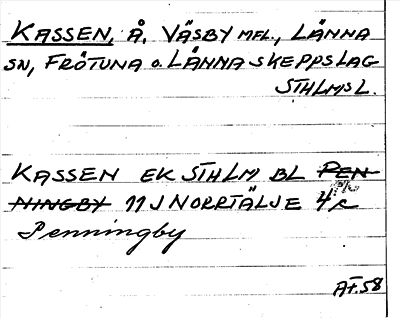 KASSEN, Å. VÄSBY MFL., LÄNNA
SN, FRÖTUNA o. LÄNNA SKEPPSLAG
STHLMS L.
KASSEN EK STHLM BL PEN-
NINGBY 11J NORRTÄLJE 4
Penningby
AT.58